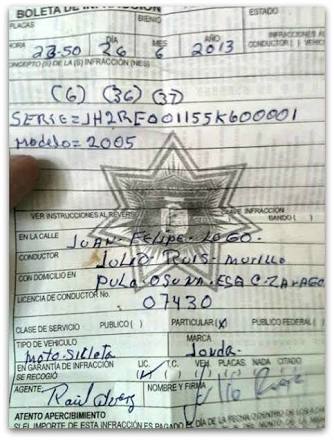 BOLETA DE INFRACCION
PLACAS BIENIO ESTADO
HORA DÍA MES AÑO INFRACCIONES AL
23-50 26 6 2013 CONDUCTOR ( ) VEHIC
CONCEPTO (S) DE LA (S) INFRACCIÓN (NES)
(6) (36) (37)
SERIE=JH2RE00115SK600001
Modelo=2005
VER INSTRUCCIONES AL REVERSO CLAVE INFRACCIÓN
BANDO ( )
EN LA CALLE JUAN- FELIPE-
CONDUCTOR JULIO RUIS- Murillo
CON DOMICILIO EN PULA-OSUNA-ESQ C-ZARAGO
LICENCIA DE CONDUCTOR No. 07430
CLASE DE SERVICIO PUBLICO ( ) PARTICULAR (X) PUBLICO FEDERAL ( )
TIPO DE VEHÍCULO MARCA
Moto-Sicleta Jonda-
EN GARANTÍA DE INFRACCIÓN LIC. T.C. VEH. PLACAS NADA CITADO
SE RECOGIÓ
AGENTE, Raúl NOMBRE Y FIRMA
ATENTO APERCIBIMIENTO
SI EL IMPORTE DE ESTA INFRACCIÓN ES PAGADO DE LA FECHA